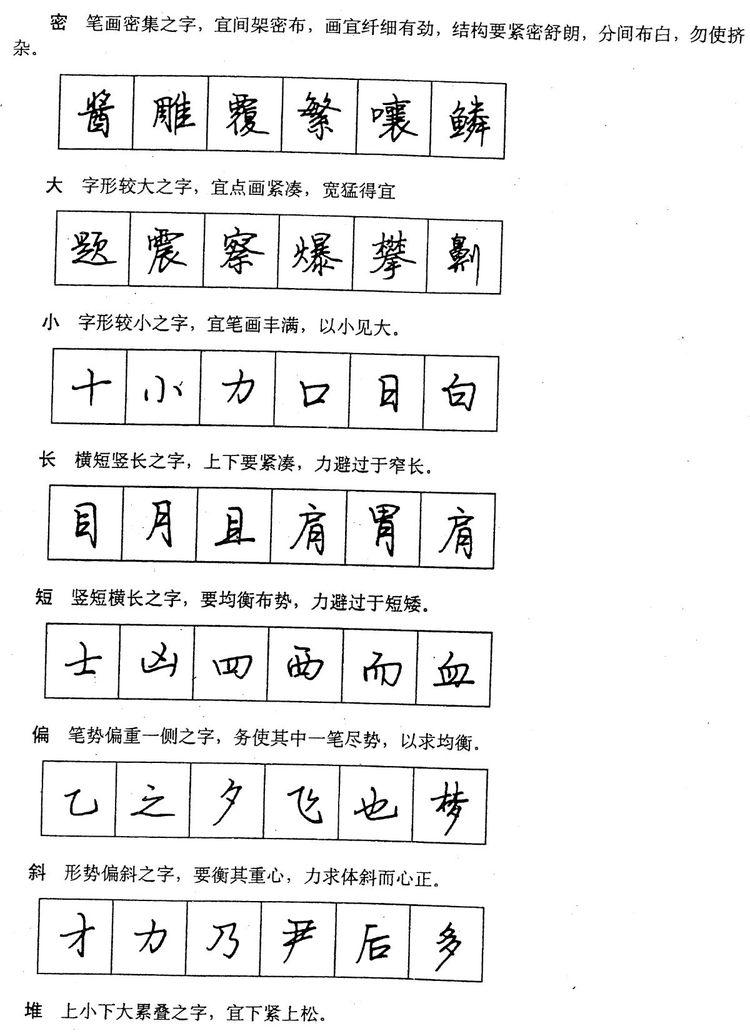 密 笔画密集之字，宜间架密布，画宜纤细有劲，结构要紧密舒朗，分间布白，勿使挤
杂。
醬 雕 覆 繁 嚷 鳞
大 字形较大之字，宜点画紧凑，宽猛得宜
题 震 察 爆 攀 劓
小 字形较小之字，宜笔画丰满，以小见大。
十 小 力 口 日 白
长 横短竖长之字，上下要紧凑，力避过于窄长。
目 月 且 肩 胃 肩
短 竖短横长之字，要均衡布势，力避过于短矮。
士 凶 四 西 而 血
偏 笔势偏重一侧之字，务使其中一笔尽势，以求均衡。
乙 之 夕 飞 也 梦
斜 形势偏斜之字，要衡其重心，力求体斜而心正。
才 力 乃 尹 后 多
堆 上小下大累叠之字，宜下紧上松。